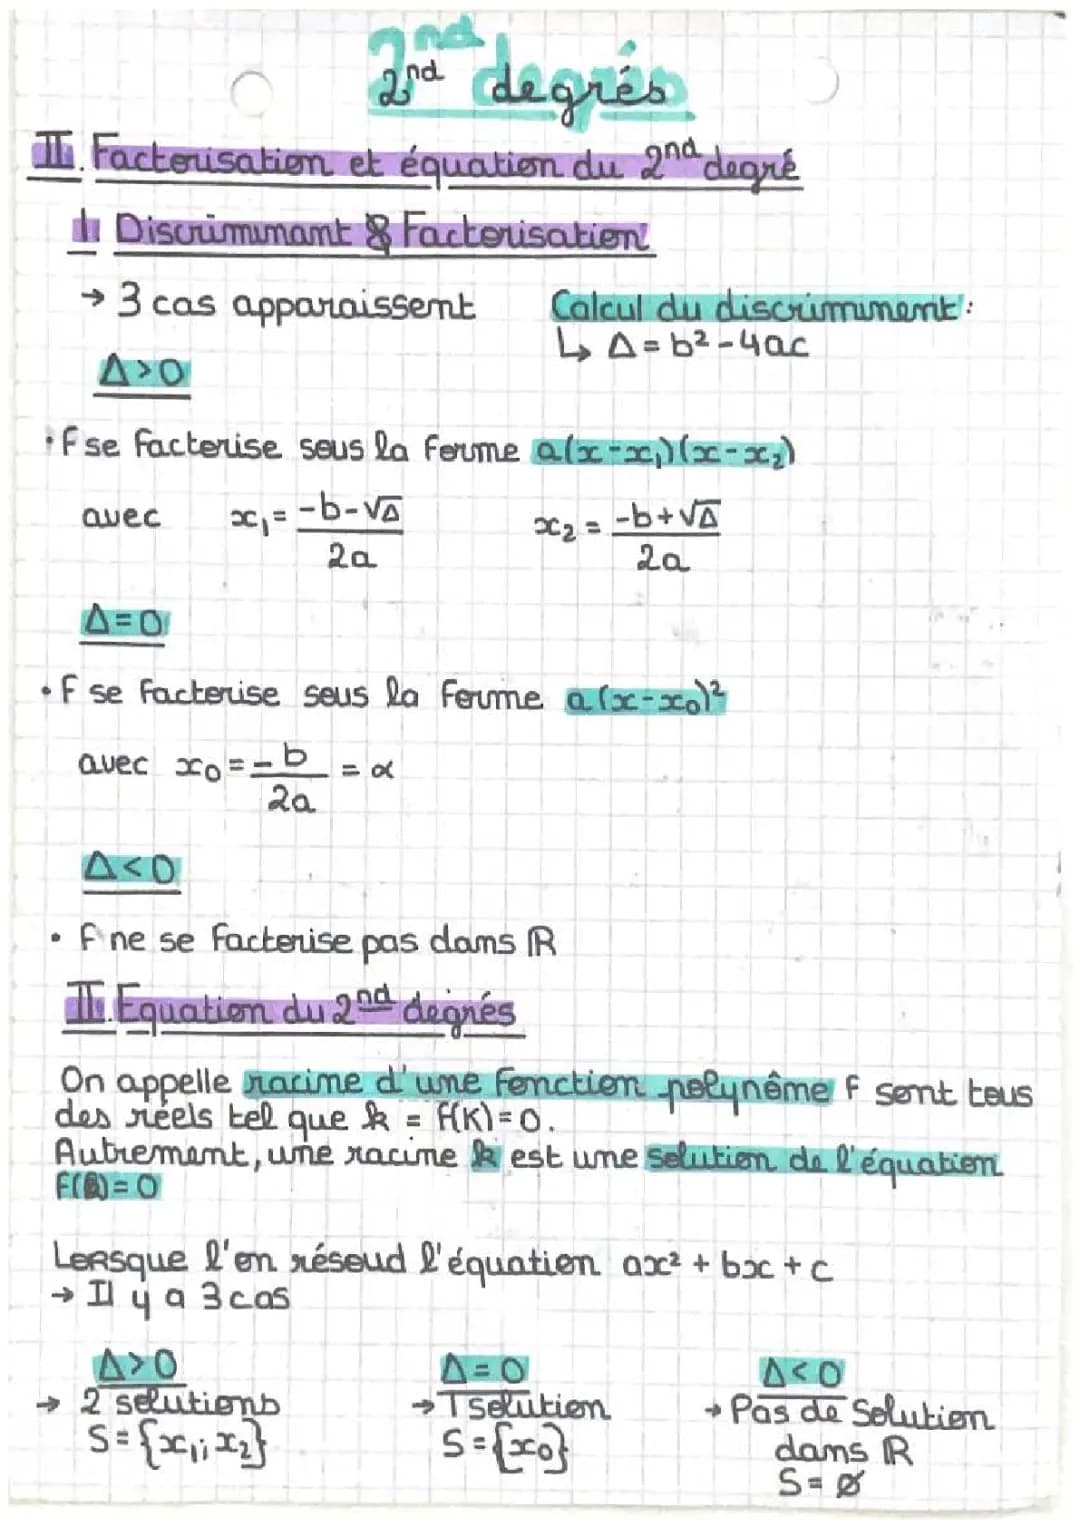 2nd degrés
II. Factorisation et équation du 2nd degré
1 Discriminant & Factorisation
→ 3 cas apparaissent
Calcul du discriminent :
↳ Δ = b² - 4ac
Δ > 0
• F se factorise sous la forme a(x-x₁)(x-x₂)
avec x₁ = (-b-√Δ)/2a x₂ = (-b+√Δ)/2a
Δ = 0
• F se factorise sous la forme a(x-x₀)²
avec x₀ = -b/2a = α
Δ < 0
• F ne se factorise pas dans ℝ
II. Equation du 2nd degrés
On appelle racine d'une fonction polynôme F sont tous
des réels tel que k = F(K) = 0.
Autrement, une racine k est une solution de l'équation
F(k) = 0
Lorsque l'on résoud l'équation ax² + bx + c
→ Il y a 3 cas
Δ > 0
→ 2 solutions
S = {x₁; x₂}
Δ = 0
→ 1 solution
S = {x₀}
Δ < 0
→ Pas de solution
dans ℝ
S = ∅